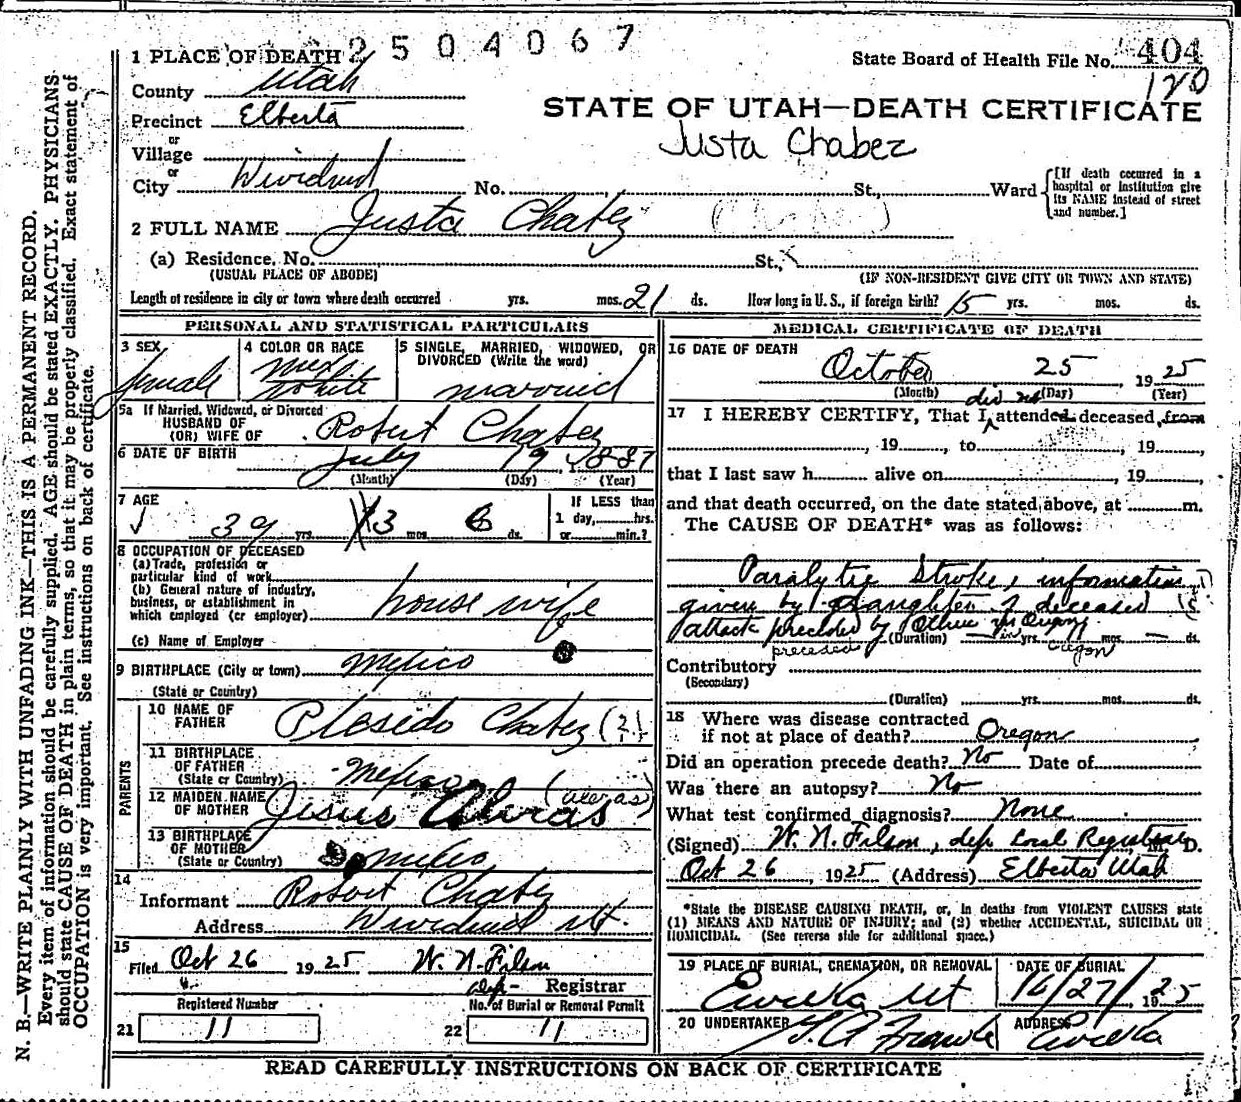 2504067
State Board of Health File No. 404
120
1 PLACE OF DEATH
County Utah
STATE OF UTAH—DEATH CERTIFICATE
Precinct Elberta
Justa Chabez
or
Village
or
City No. St., Ward
[If death occurred in a hospital or institution give its NAME instead of street and number.]
2 FULL NAME Justa Chabez
(a) Residence. No. St.,
(USUAL PLACE OF ABODE) (IF NON-RESIDENT GIVE CITY OR TOWN AND STATE)
Length of residence in city or town where death occurred yrs. mos. 21 ds. How long in U.S., if foreign birth? 15 yrs. mos. ds.
PERSONAL AND STATISTICAL PARTICULARS
3 SEX female
4 COLOR OR RACE Mex White
5 SINGLE, MARRIED, WIDOWED, OR DIVORCED (Write the word)
married
5a If Married, Widowed, or Divorced
HUSBAND OF
(OR) WIFE OF Robert Chabez
6 DATE OF BIRTH July 19, 1887
(Month) (Day) (Year)
7 AGE 39 yrs. 3 mos. 6 ds.
If LESS than
1 day, hrs.
or min.?
8 OCCUPATION OF DECEASED
(a) Trade, profession or
particular kind of work
(b) General nature of industry,
business, or establishment in
which employed (or employer) house wife
(c) Name of Employer
9 BIRTHPLACE (City or town) Mexico
(State or Country)
PARENTS
10 NAME OF
FATHER Plesido Chabez (?)
11 BIRTHPLACE
OF FATHER
(State or Country) Mexico
12 MAIDEN NAME
OF MOTHER Jesus
13 BIRTHPLACE
OF MOTHER
(State or Country) Mexico
14
Informant Robert Chabez
Address
15
Filed Oct 26 1925 W. N. Filson
dep- Registrar
Registered Number No. of Burial or Removal Permit
21 11 22 11
MEDICAL CERTIFICATE OF DEATH
16 DATE OF DEATH
October 25, 1925
(Month) (Day) (Year)
did not
17 I HEREBY CERTIFY, That I attended deceased, from
, 19 , to , 19 ,
that I last saw h alive on , 19 ,
and that death occurred, on the date stated above, at m.
The CAUSE OF DEATH* was as follows:
Paralytic Stroke, information
given by daughter of deceased
attack preceded by Other in Oregon
(Duration) yrs. mos. ds.
preceded in Oregon
Contributory
(Secondary)
(Duration) yrs. mos. ds.
18 Where was disease contracted
if not at place of death? Oregon
Did an operation precede death? No Date of
Was there an autopsy? No
What test confirmed diagnosis? None
(Signed) W. N. Filson, dep Local Registrar M. D.
Oct 26, 1925 (Address) Elberta Utah
*State the DISEASE CAUSING DEATH, or, in deaths from VIOLENT CAUSES state
(1) MEANS AND NATURE OF INJURY; and (2) whether ACCIDENTAL, SUICIDAL OR
HOMICIDAL. (See reverse side for additional space.)
19 PLACE OF BURIAL, CREMATION, OR REMOVAL DATE OF BURIAL
Eureka Ut 10/27/1925
20 UNDERTAKER ADDRESS
Eureka
READ CAREFULLY INSTRUCTIONS ON BACK OF CERTIFICATE
N. B.—WRITE PLAINLY WITH UNFADING INK—THIS IS A PERMANENT RECORD.
Every item of information should be carefully supplied. AGE should be stated EXACTLY. PHYSICIANS
should state CAUSE OF DEATH in plain terms, so that it may be properly classified. Exact statement of
OCCUPATION is very important. See instructions on back of certificate.